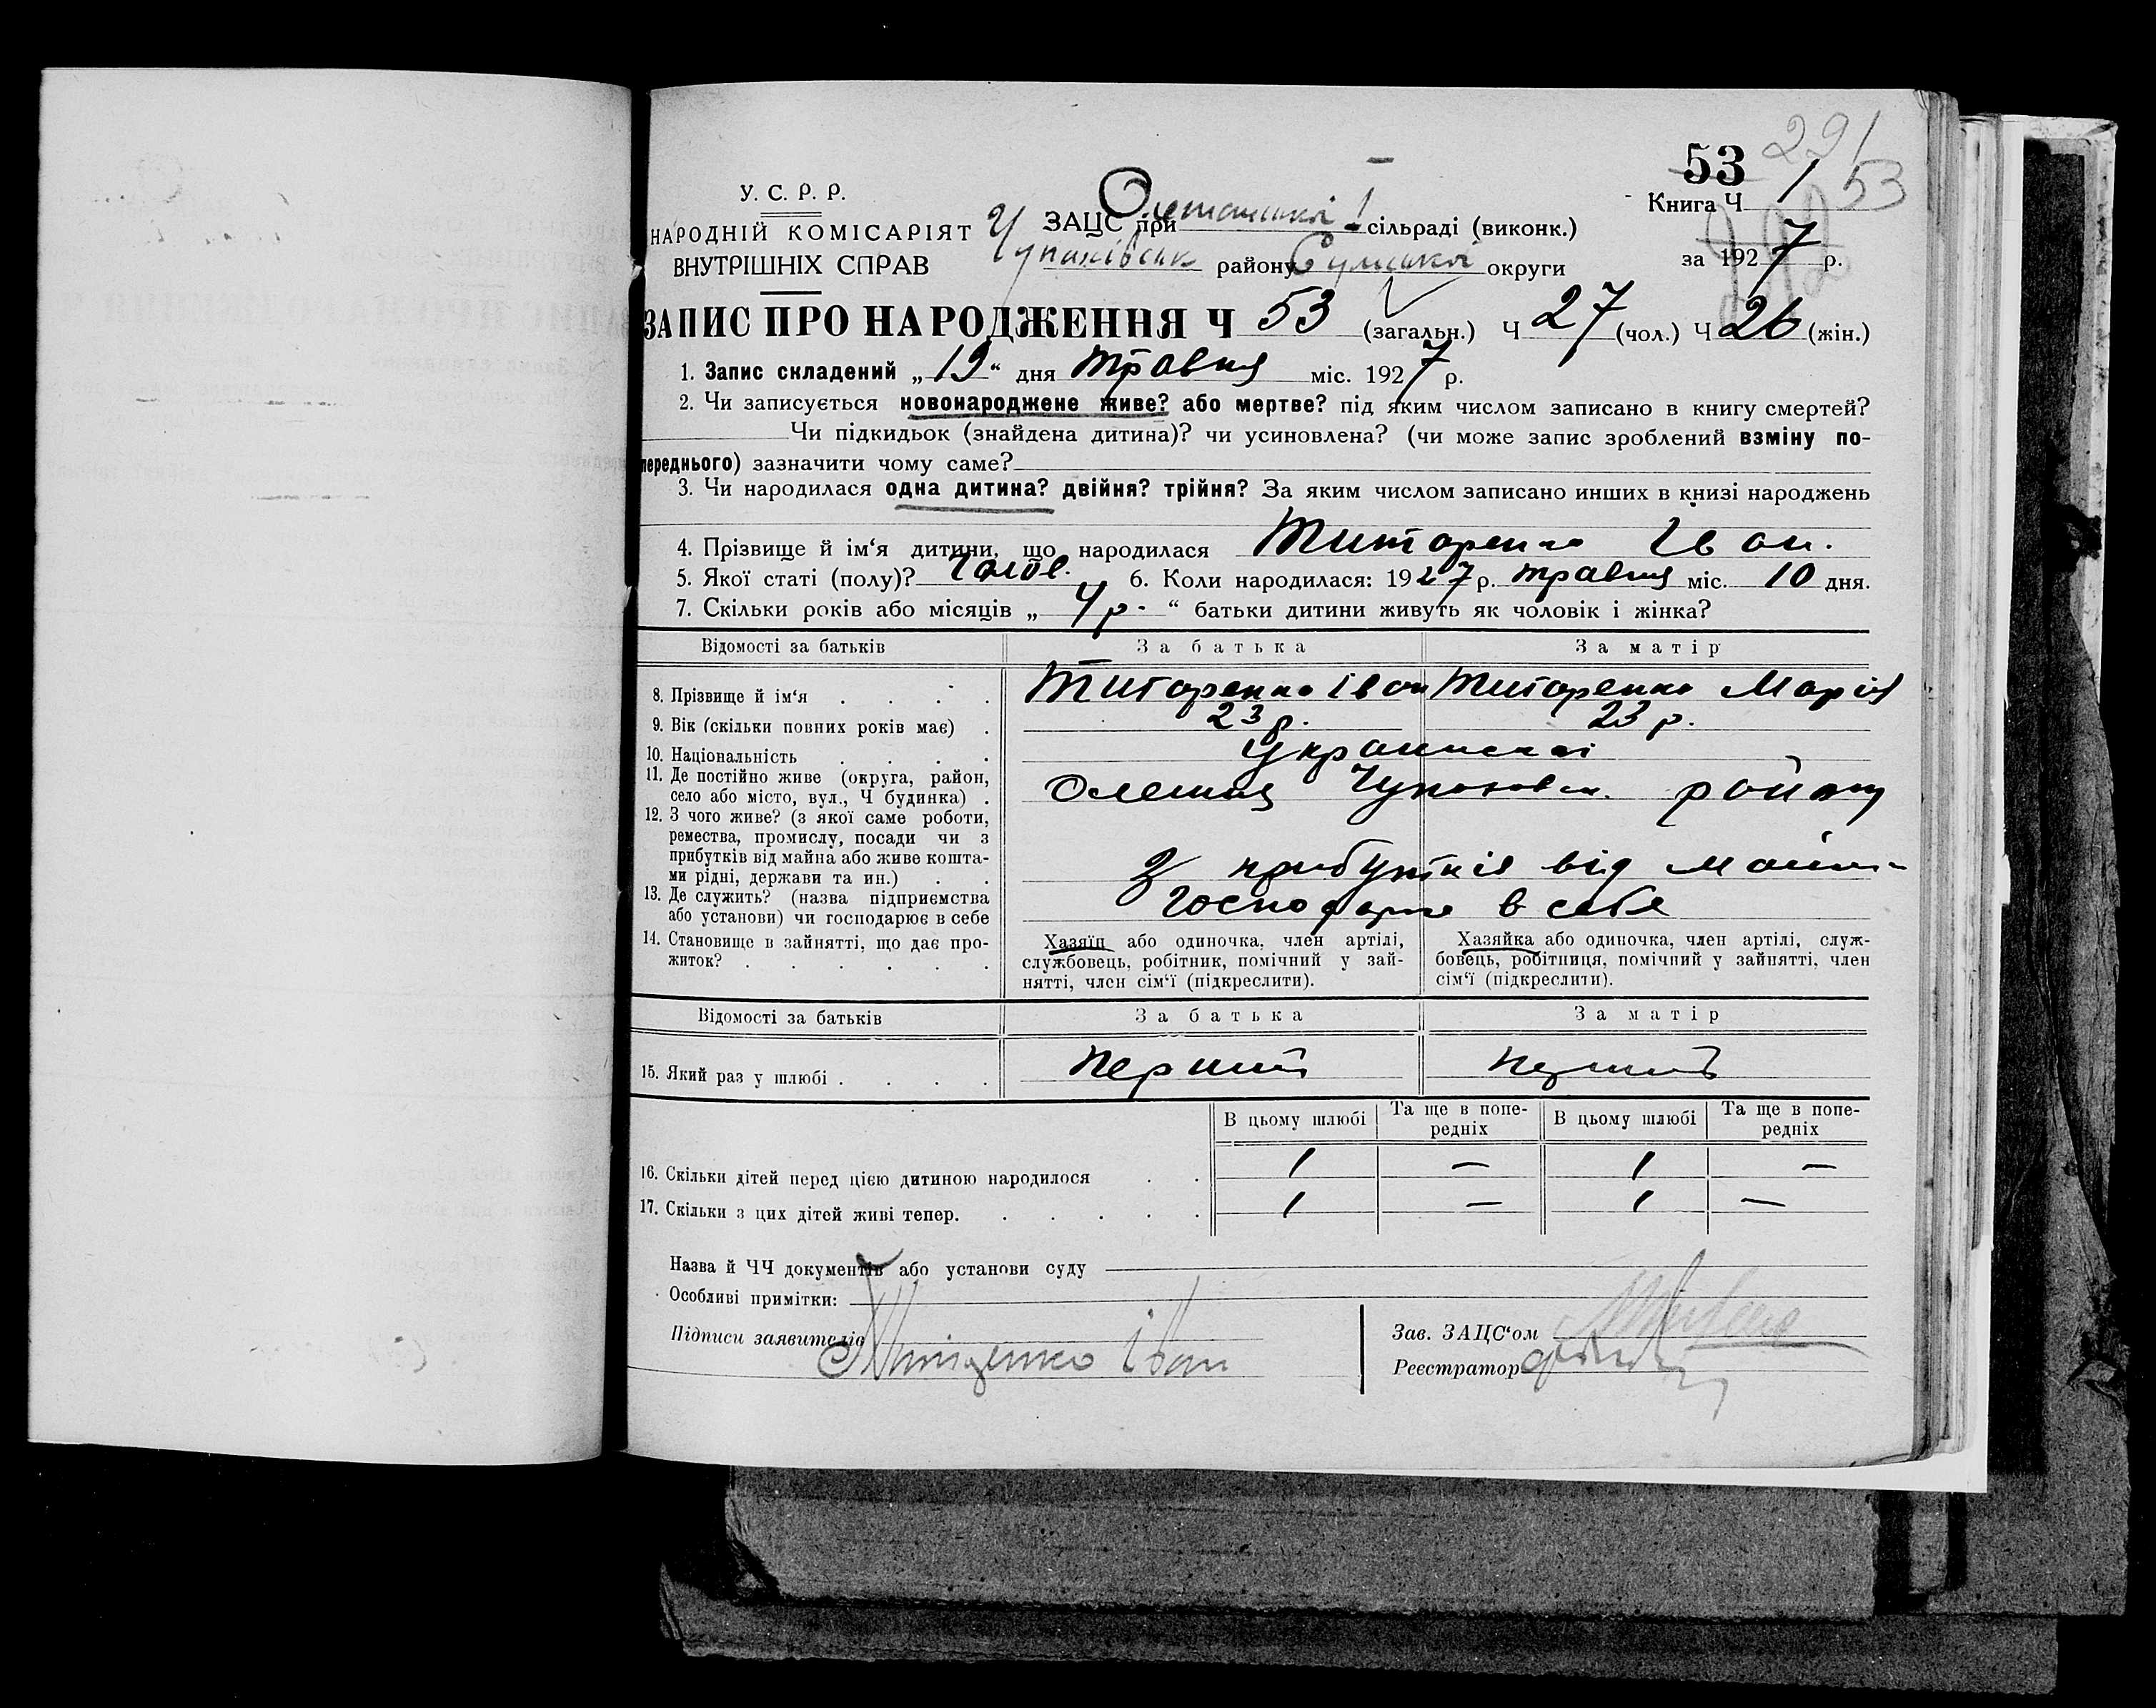 291
53 53
У. С. Р. Р.
Книга Ч 1
НАРОДНІЙ КОМІСАРІЯТ ЗАЦС при сільраді (виконк.)
ВНУТРІШНІХ СПРАВ Чупахівськ району Сумської округи за 1927 р.
ЗАПИС ПРО НАРОДЖЕННЯ Ч 53 (загальн.) Ч 27 (чол.) Ч 26 (жін.)
1. Запис складений „19“ дня травня міс. 1927 р.
2. Чи записується новонароджене живе? або мертве? під яким числом записано в книгу смертей?
Чи підкидьок (знайдена дитина)? чи усиновлена? (чи може запис зроблений взміну по-
переднього) зазначити чому саме?
3. Чи народилася одна дитина? двійня? трійня? За яким числом записано инших в книзі народжень
4. Прізвище й ім‘я дитини, що народилася Титаренко Іван.
5. Якої статі (полу)? Чолов. 6. Коли народилася: 1927 р. травня міс. 10 дня.
7. Скільки років або місяців „ 4 р. “ батьки дитини живуть як чоловік і жінка?
Відомості за батьків За батька За матір
8. Прізвище й ім‘я Титаренко Іван Титаренко Марія
9. Вік (скільки повних років має) 23 р. 23 р.
10. Національність
11. Де постійно живе (округа, район,
село або місто, вул., Ч будинка) Олешня району
12. З чого живе? (з якої саме роботи,
ремества, промислу, посади чи з
прибутків від майна або живе кошта-
ми рідні, держави та ин.) З прибутків від майна
13. Де служить? (назва підприємства
або установи) чи господарює в себе Господарює в себе
14. Становище в зайнятті, що дає про-
житок?
Хазяїн або одиночка, член артілі,
службовець, робітник, помічний у зай-
нятті, член сім‘ї (підкреслити).
Хазяйка або одиночка, член артілі, служ-
бовець, робітниця, помічний у зайнятті, член
сім‘ї (підкреслити).
Відомості за батьків За батька За матір
15. Який раз у шлюбі Перший Перший
В цьому шлюбі Та ще в попе-
редніх В цьому шлюбі Та ще в попе-
редніх
16. Скільки дітей перед цією дитиною народилося 1 — 1 —
17. Скільки з цих дітей живі тепер. 1 — 1 —
Назва й ЧЧ документів або установи суду
Особливі примітки:
Підписи заявителів Іван
Зав. ЗАЦС‘ом
Реєстратор